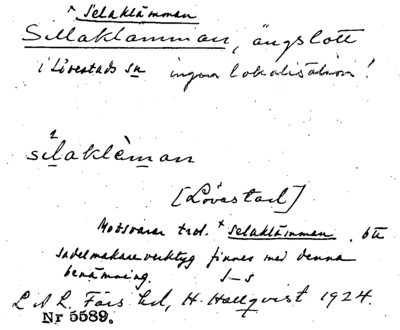 * Selaklämman
Sillaklämman, ängslott
i Lövestads sn ingen lokalisation!
sèlaklèman
[Lövestad]
Motsvarar trol. * Selaklämman. Ett
sadelmakareverktyg finnes med denna
benämning. I–s
L A L. Färs hd, H. Hallqvist 1924.
Nr 5589.